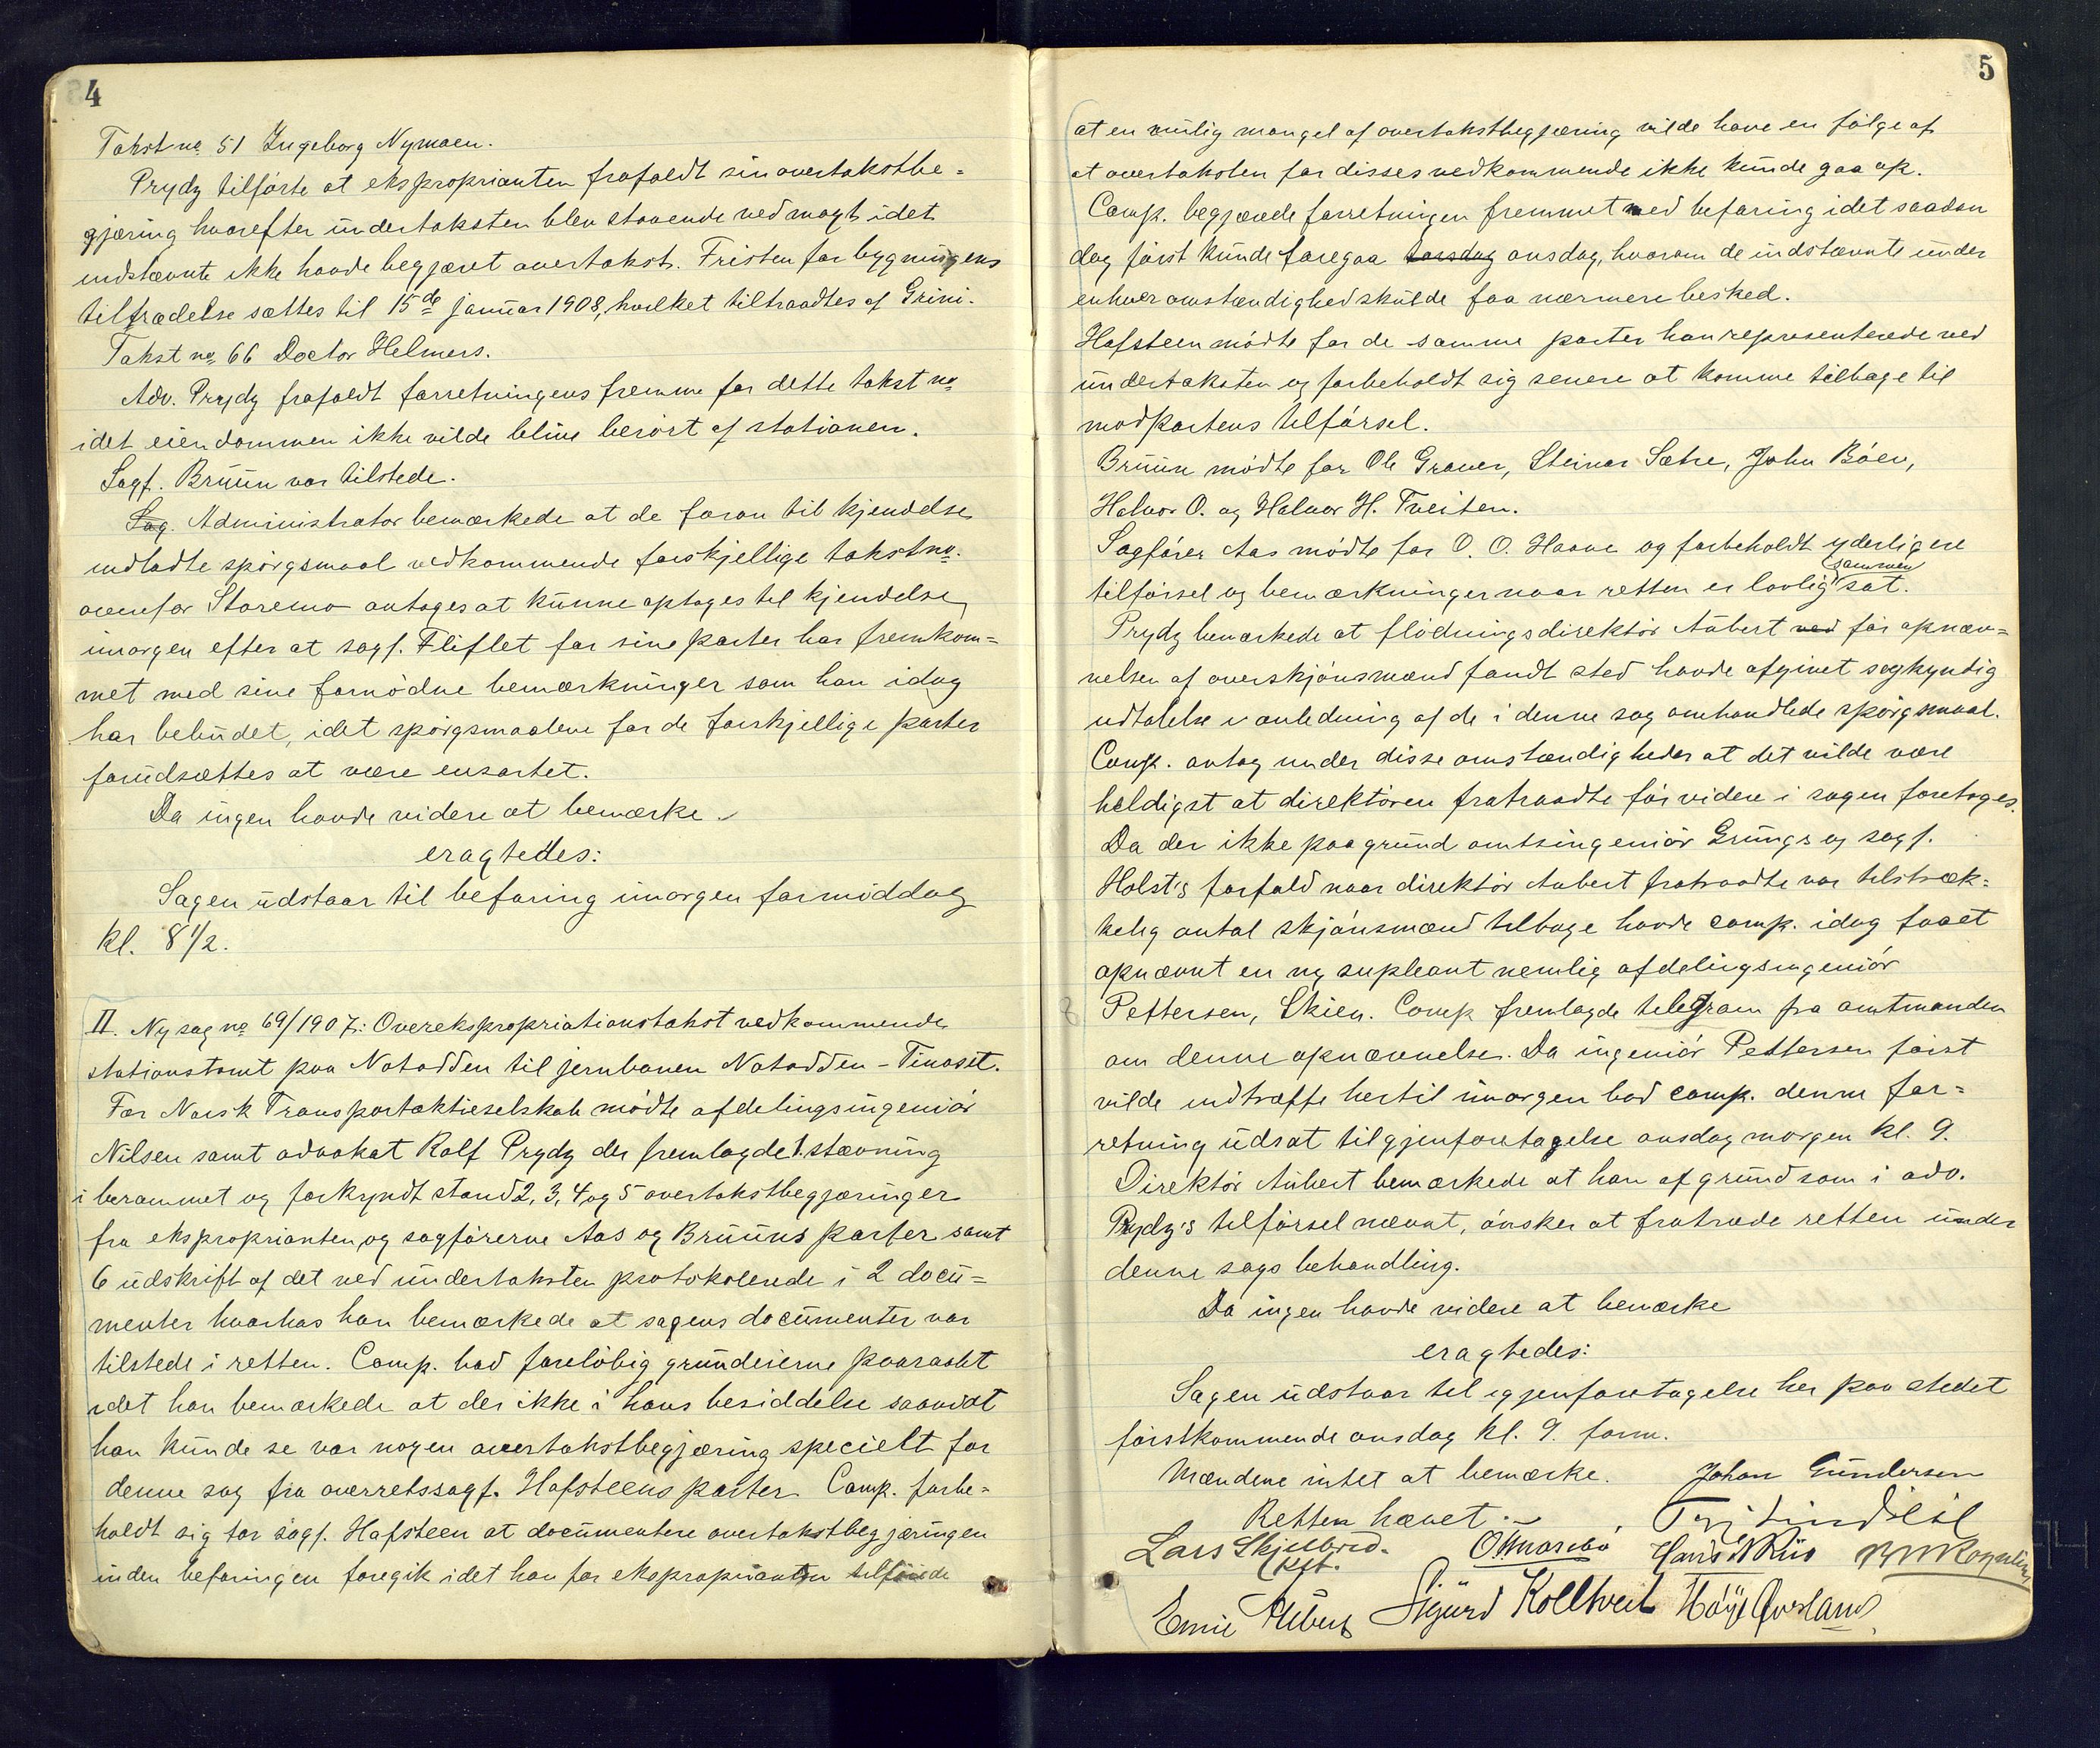 4
Takst no 51 Ingeborg Nymoen.
Prydz tilførte at eksproprianten frafaldt sin overtakstbe=
gjæring hvorefter undertaksten blev staaende ved magt idet
indstævnte ikke havde begjæret overtakst. Fristen for bygningens
tiltrædelse sættes til 15de januar 1908, hvilket tiltraadtes af Grini.
Takst no 66 Doctor Helmers.
Adv. Prydz frafaldt forretningens fremme for dette takst no
idet eiendommen ikke vilde blive berørt af stationen.
Sagf. Bruun var tilstede.
Sag. Administrator bemærkede at de foran til kjendelse
indladte spørgsmaal vedkommende forskjellige takstno.
ovenfor Storemo antages at kunne optages til kjendelse
imorgen efter at sagf. Fliflet for sine parter har fremkom=
met med sine fornødne bemærkninger som han idag
har bebudet, idet spørgsmaalene for de forskjellige parter
forudsættes at være ensartet.
Da ingen havde videre at bemærke
eragtedes:
Sagen udstaar til befaring imorgen formiddag
kl. 8 1/2.
II. Ny sag no 69/1907: Overekspropriationstakst vedkommende
stationstomt paa Notodden til jernbanen Notodden - Tinoset.
For Norsk Transportaktieselskab mødte afdelingsingeniør
Nilsen samt advokat Rolf Prydz der fremlagde 1. stævning
i berammet og forkyndt stand 2, 3, 4 og 5 overtakstbegjæringer
fra eksproprianten og sagførerne Aas og Bruuns parter samt
6 udskrift af det ved undertaksten protokolerede i 2 docu=
menter hvorhos han bemærkede at sagens documenter var
tilstede i retten. Comp. bad foreløbig grundeierne paaraabt
idet han bemærkede at der ikke i hans besiddelse saavidt
han kunde se var nogen overtakstbegjæring specielt for
denne sag fra overretssagf. Hofsteens parter. Comp. forbe=
holdt sig for sagf. Hafsteen at documentere overtakstbegjæringen
inden befaringen foregik idet han for eksproprianten tilførte
5
at en mulig mangel af overtakstbegjæring vilde have en følge af
at overtaksten for disses vedkommende ikke kunde gaa op.
Comp. begjærede forretningen fremmet med befaring idet saadan
dog først kunde foregaa torsdag onsdag, hvorom de indstævnte under
enhver omstændighed skulde faa nærmere besked.
Hafsteen mødte for de samme parter han representerede ved
undertaksten og forbeholdt sig senere at komme tilbage til
modpartens tilførsel.
Bruun mødte for Ole Graver, Steinar Sætre, John Bøen,
Halvor O. og Halvor H. Tveiten.
Sagfører Aas mødte for O. O. Haave og forbeholdt yderligere
tilførsel og bemærkninger naar retten er lovlig sammen sat.
Prydz bemærkede at flødningsdirektør Aubert ved før opnæv=
nelsen af overskjønsmænd fandt sted havde afgivet sagkyndig
udtalelse i anledning af de i denne sag omhandlede spørgsmaal.
Comp. antog under disse omstændigheder at det vilde være
heldigst at direktøren fratraadte før videre i sagen foretoges.
Da der ikke paa grund amtsingeniør Grungs og sagf.
Holst's forfald naar direktør Aubert fratraadte var tilstræk=
kelig antal skjønsmænd tilbage havde comp. idag faaet
opnævnt en ny supleant nemlig afdelingsingeniør
Pettersen, Skien. Comp fremlagde telegram fra amtmanden
om denne opnævnelse. Da ingeniør Pettersen først
vilde indtræffe hertil imorgen bad comp. denne for=
retning udsat til gjenforetagelse onsdag morgen kl. 9.
Direktør Aubert bemærkede at han af grund som i adv.
Prydz's tilførsel nævnt, ønsker at fratræde retten under
denne sags behandling.
Da ingen havde videre at bemærke
eragtedes:
Sagen udstaar til igjenforetagelse her paa stedet
førstkommende onsdag kl. 9. form.
Mændene intet at bemærke. Johan Gundersen
Retten hævet.
Lars Skjelbred. Hans N Riis
kst.
Emil Aubert Sigurd Kolltveit Høye Øverland